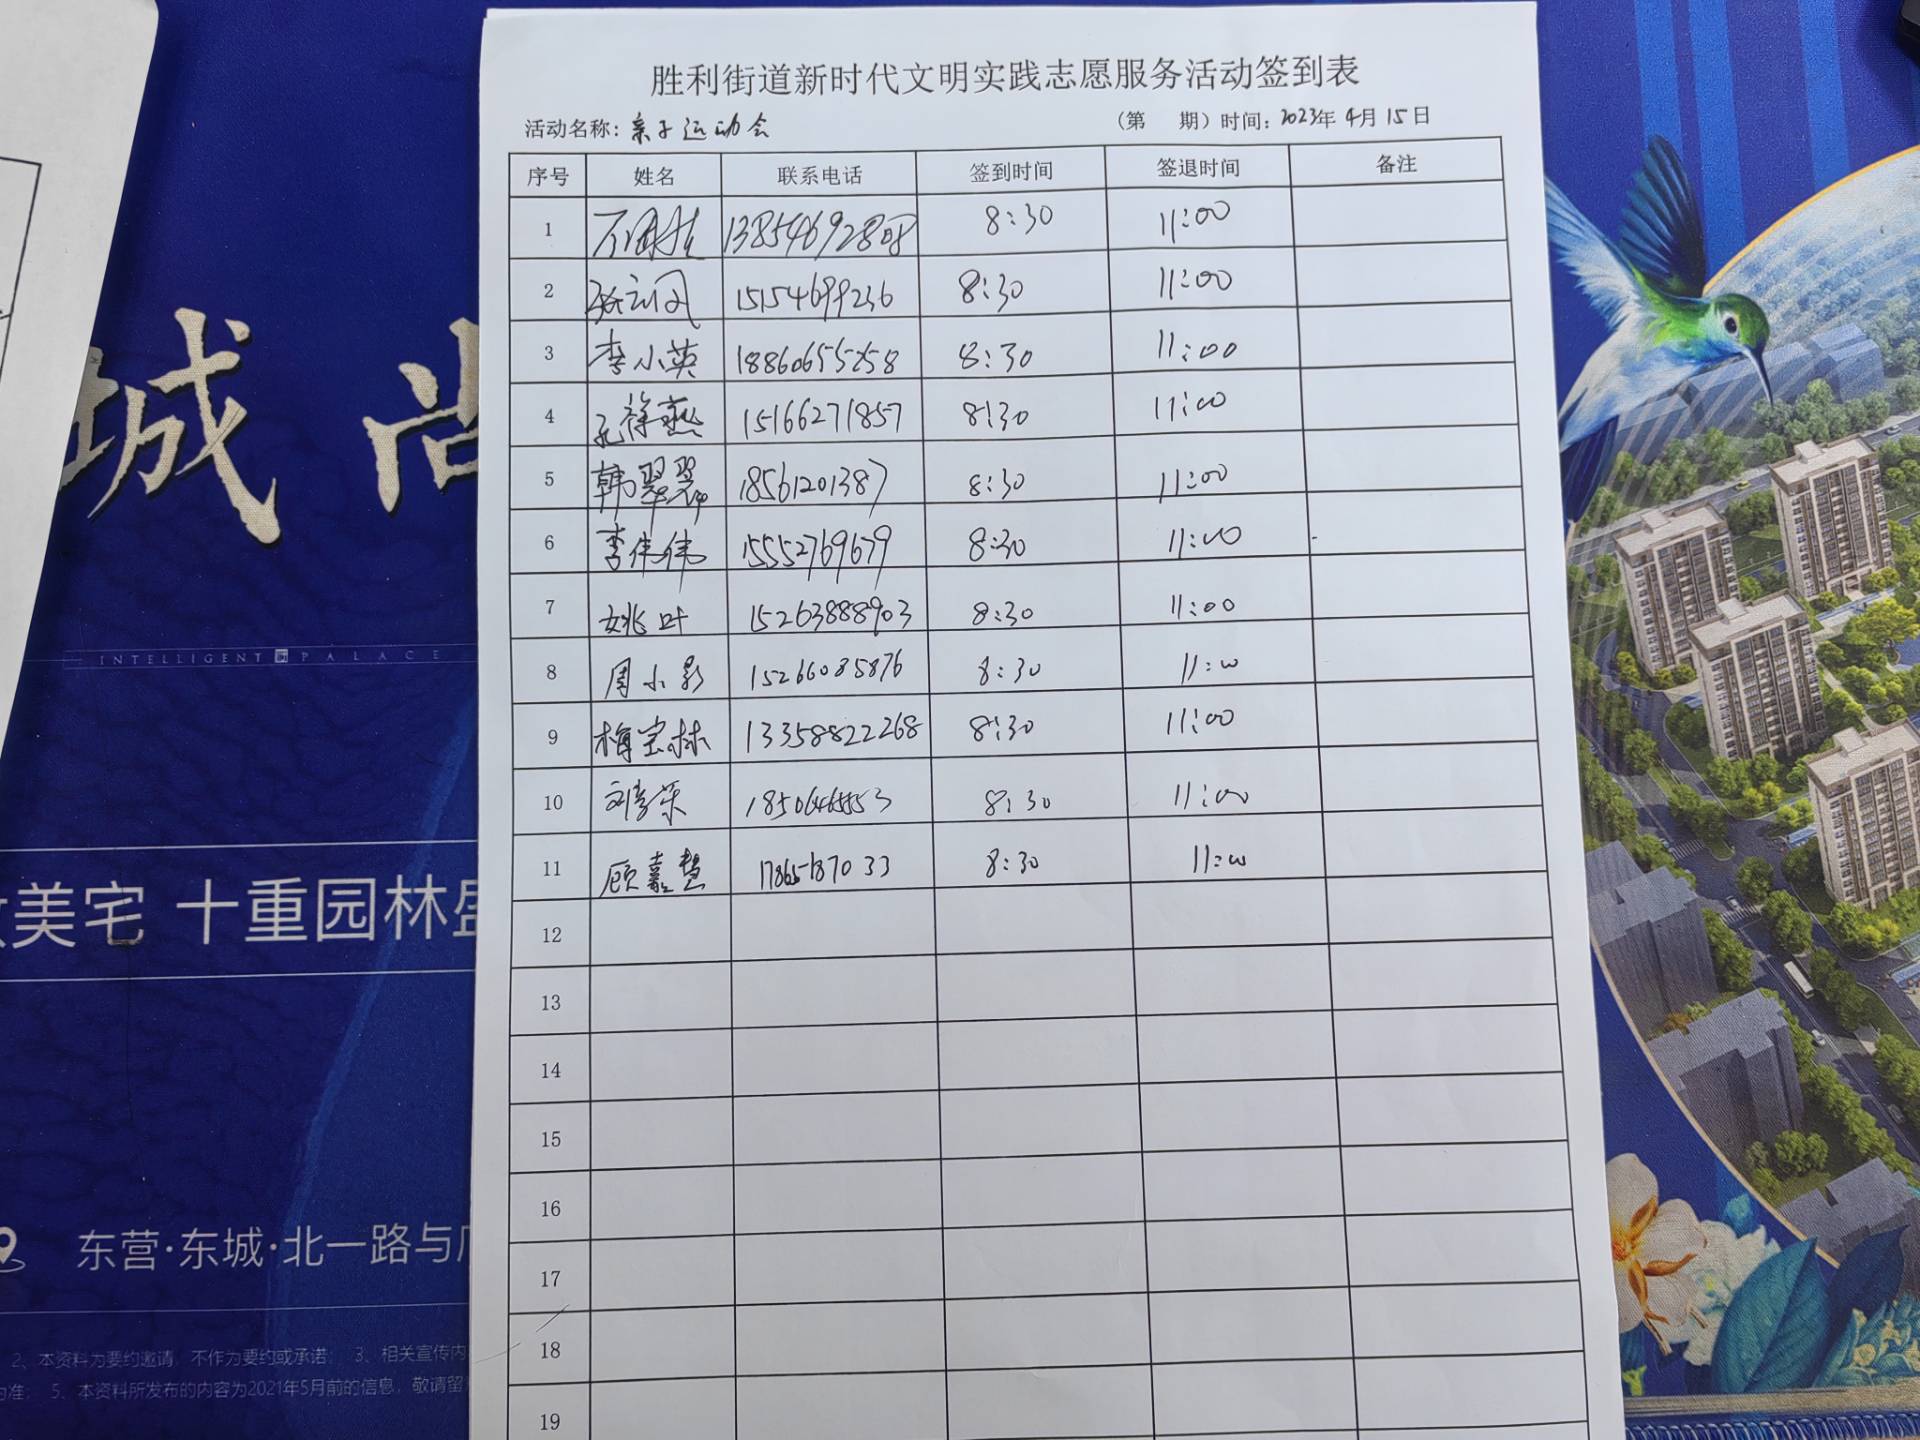 胜利街道新时代文明实践志愿服务活动签到表
活动名称：亲子运动会 （第 期）时间：2023年4月15日
序号 姓名 联系电话 签到时间 签退时间 备注
1 13854692808 8:30 11:00
2 15154699236 8:30 11:00
3 李小英 18860655258 8:30 11:00
4 孔筱燕 15166271857 8:30 11:00
5 韩翠翠 18561201387 8:30 11:00
6 李伟伟 15552769679 8:30 11:00
7 姚叶 15263888903 8:30 11:00
8 周小影 15266085876 8:30 11:00
9 梅宝林 13358822268 8:30 11:00
10 8:30 11:00
11 顾嘉慧 17865187033 8:30 11:00
12
13
14
15
16
17
18
19
城 尚
INTELLIGENT PALACE
美宅 十重园林盛
东营·东城·北一路与
2、本资料为要约邀请，不作为要约或承诺； 3、相关宣传内
为准； 5、本资料所发布的内容为2021年5月前的信息，敬请留